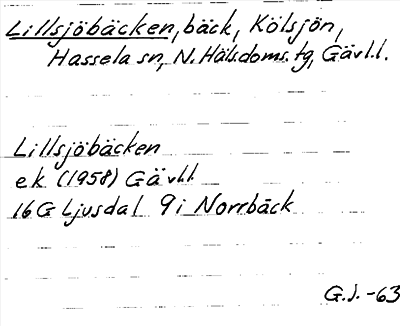 Lillsjöbäcken, bäck, Kölsjön,
Hassela sn, N. Häls.doms. tg, Gävl.l.
Lillsjöbäcken
ek (1958) Gävl.l.
16G Ljusdal 9i Norrbäck
G.J. -63